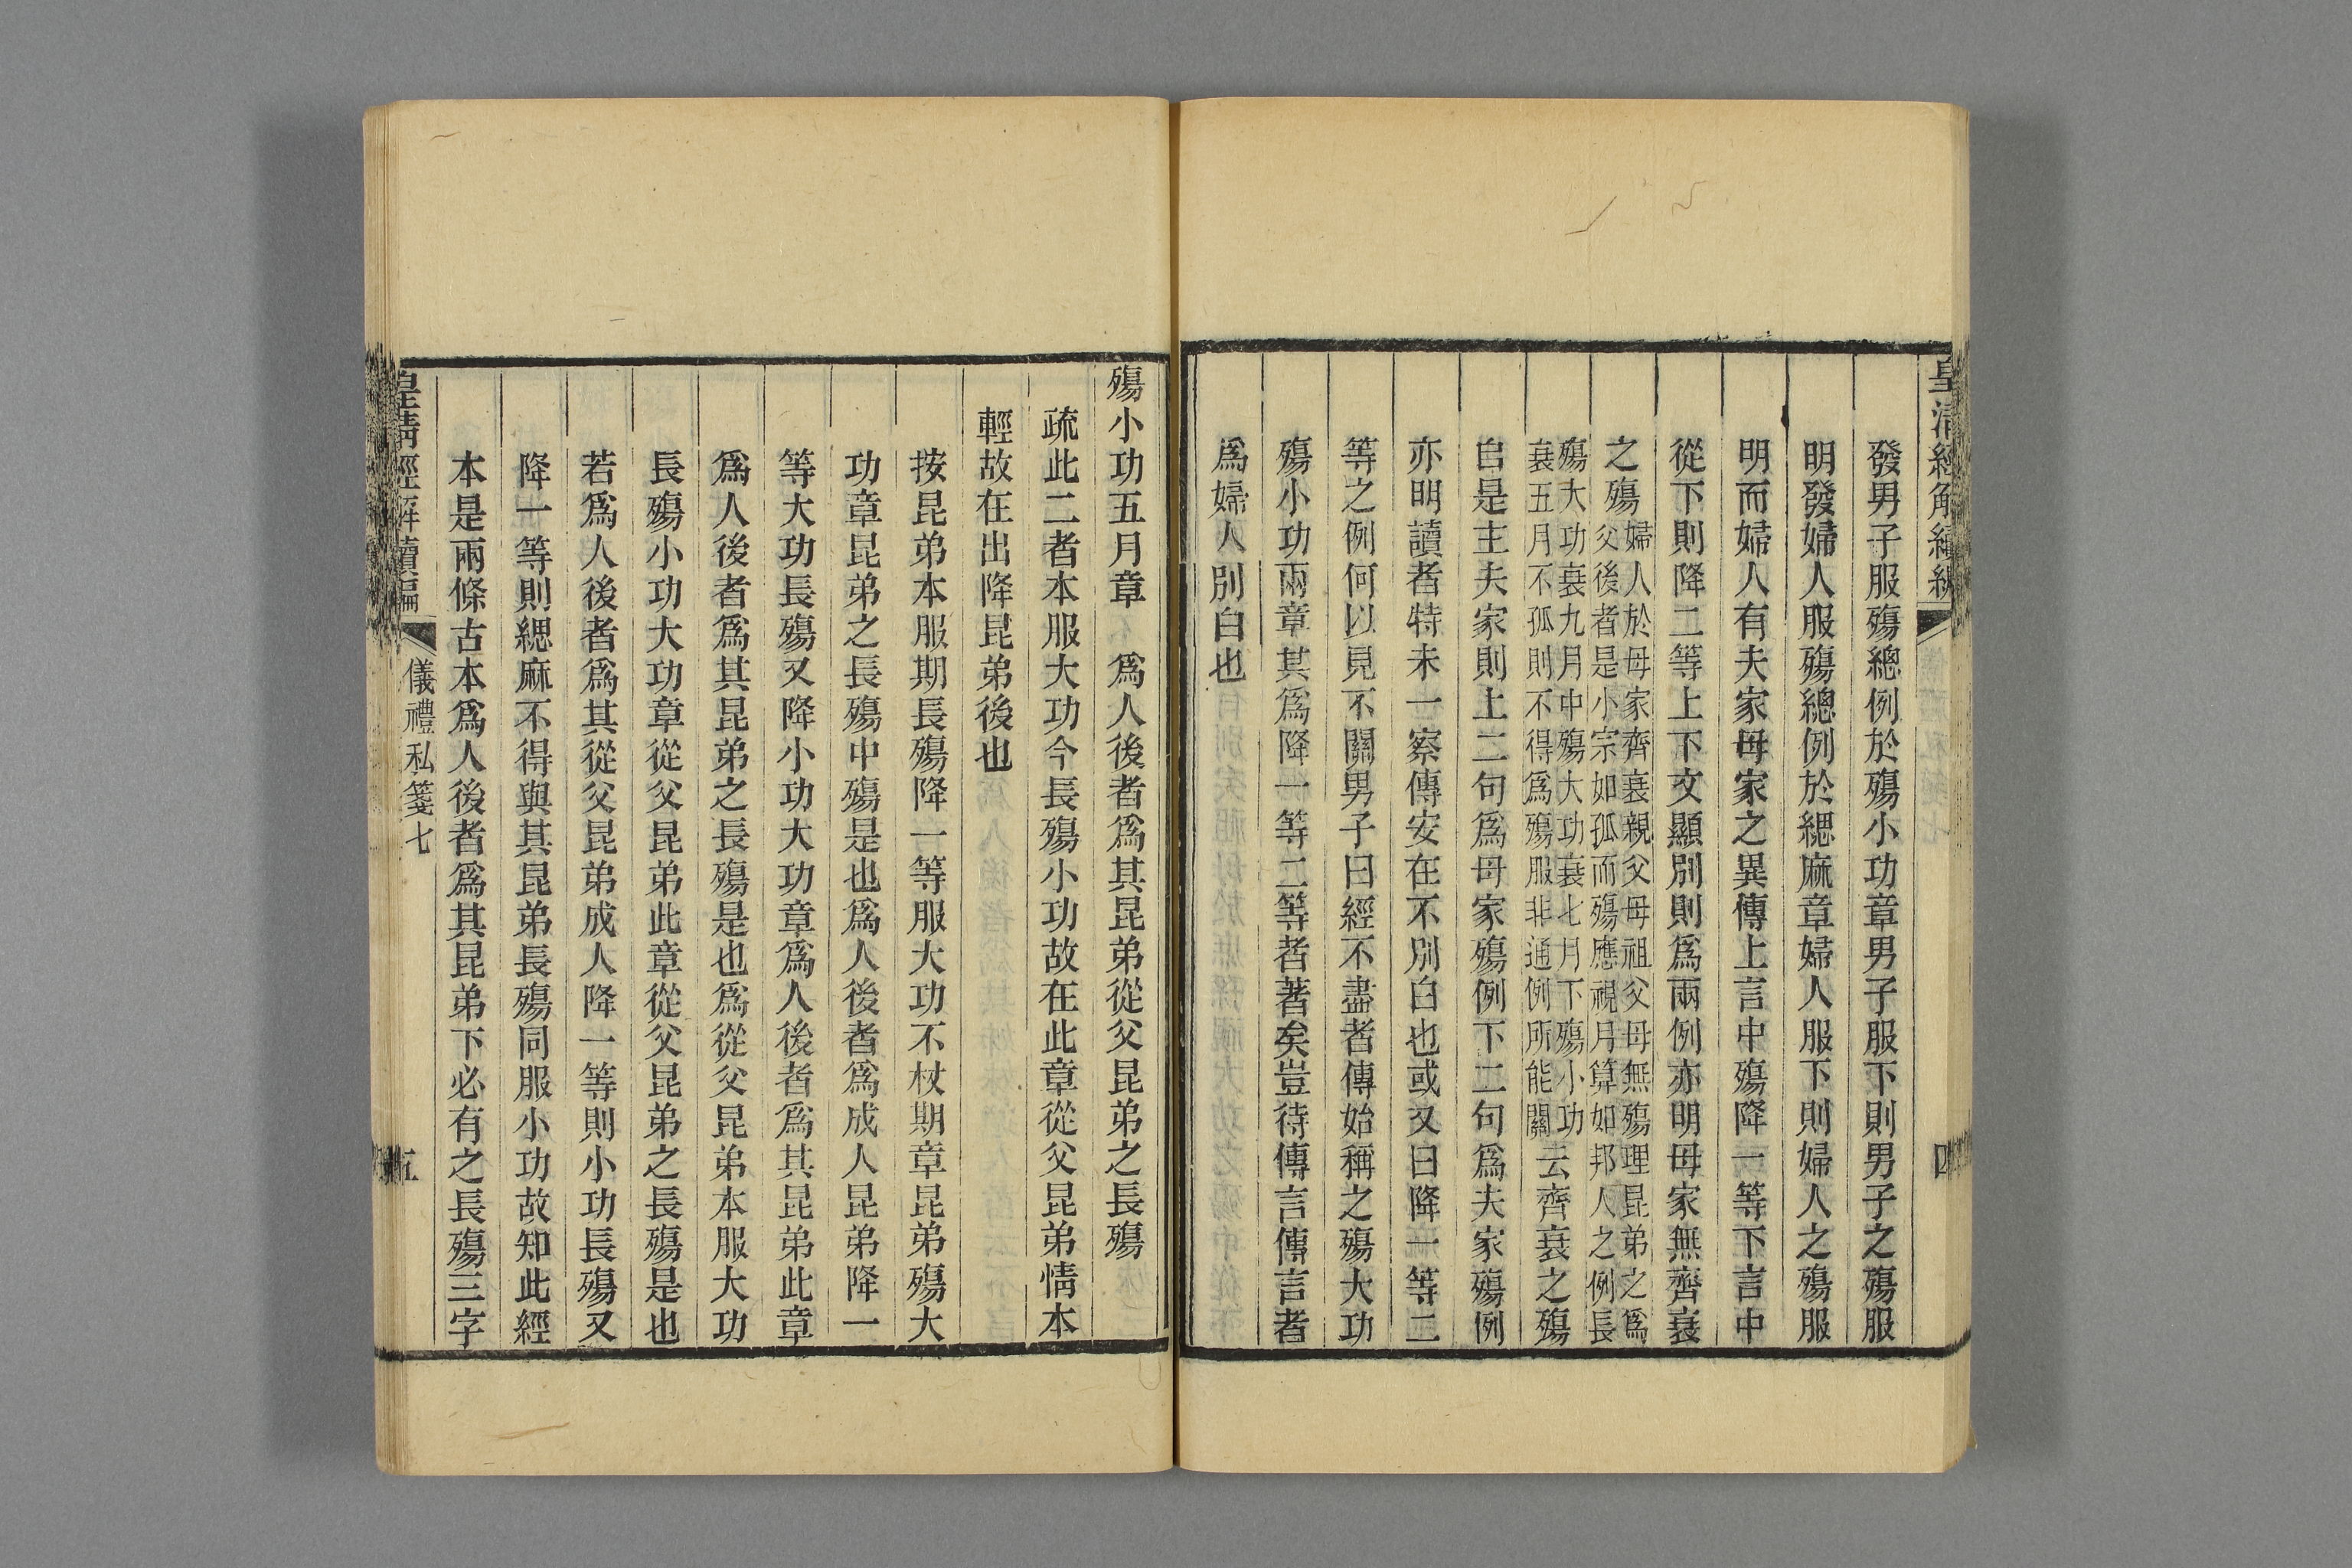 皇清經解續編
四
發男子服殤總例於殤小功章男子服下則男子之殤服
明發婦人服殤總例於緦麻章婦人服下則婦人之殤服
明而婦人有夫家母家之異傳上言中殤降一等下言中
從下則降二等上下文顯別則爲兩例亦明母家無齊衰
之殤婦人於母家齊衰親父母祖父母無殤理昆弟之爲
父後者是小宗如孤而殤應視月算如邦人之例長
殤大功衰九月中殤大功衰七月下殤小功
衰五月不孤則不得爲殤服非通例所能關云齊衰之殤
自是主夫家則上二句爲母家殤例下二句爲夫家殤例
亦明讀者特未一察傳安在不別白也或又曰降一等二
等之例何以見不關男子曰經不盡者傳始稱之殤大功
殤小功兩章其爲降一等二等者著矣豈待傳言傳言者
爲婦人別白也
殤小功五月章　爲人後者爲其昆弟從父昆弟之長殤
疏此二者本服大功今長殤小功故在此章從父昆弟情本
輕故在出降昆弟後也
按昆弟本服期長殤降一等服大功不杖期章昆弟殤大
功章昆弟之長殤中殤是也爲人後者爲成人昆弟降一
等大功長殤又降小功大功章爲人後者爲其昆弟此章
爲人後者爲其昆弟之長殤是也爲從父昆弟本服大功
長殤小功大功章從父昆弟此章從父昆弟之長殤是也
若爲人後者爲其從父昆弟成人降一等則小功長殤又
降一等則緦麻不得與其昆弟長殤同服小功故知此經
本是兩條古本爲人後者爲其昆弟下必有之長殤三字
皇清經解續編
儀禮私箋七
五